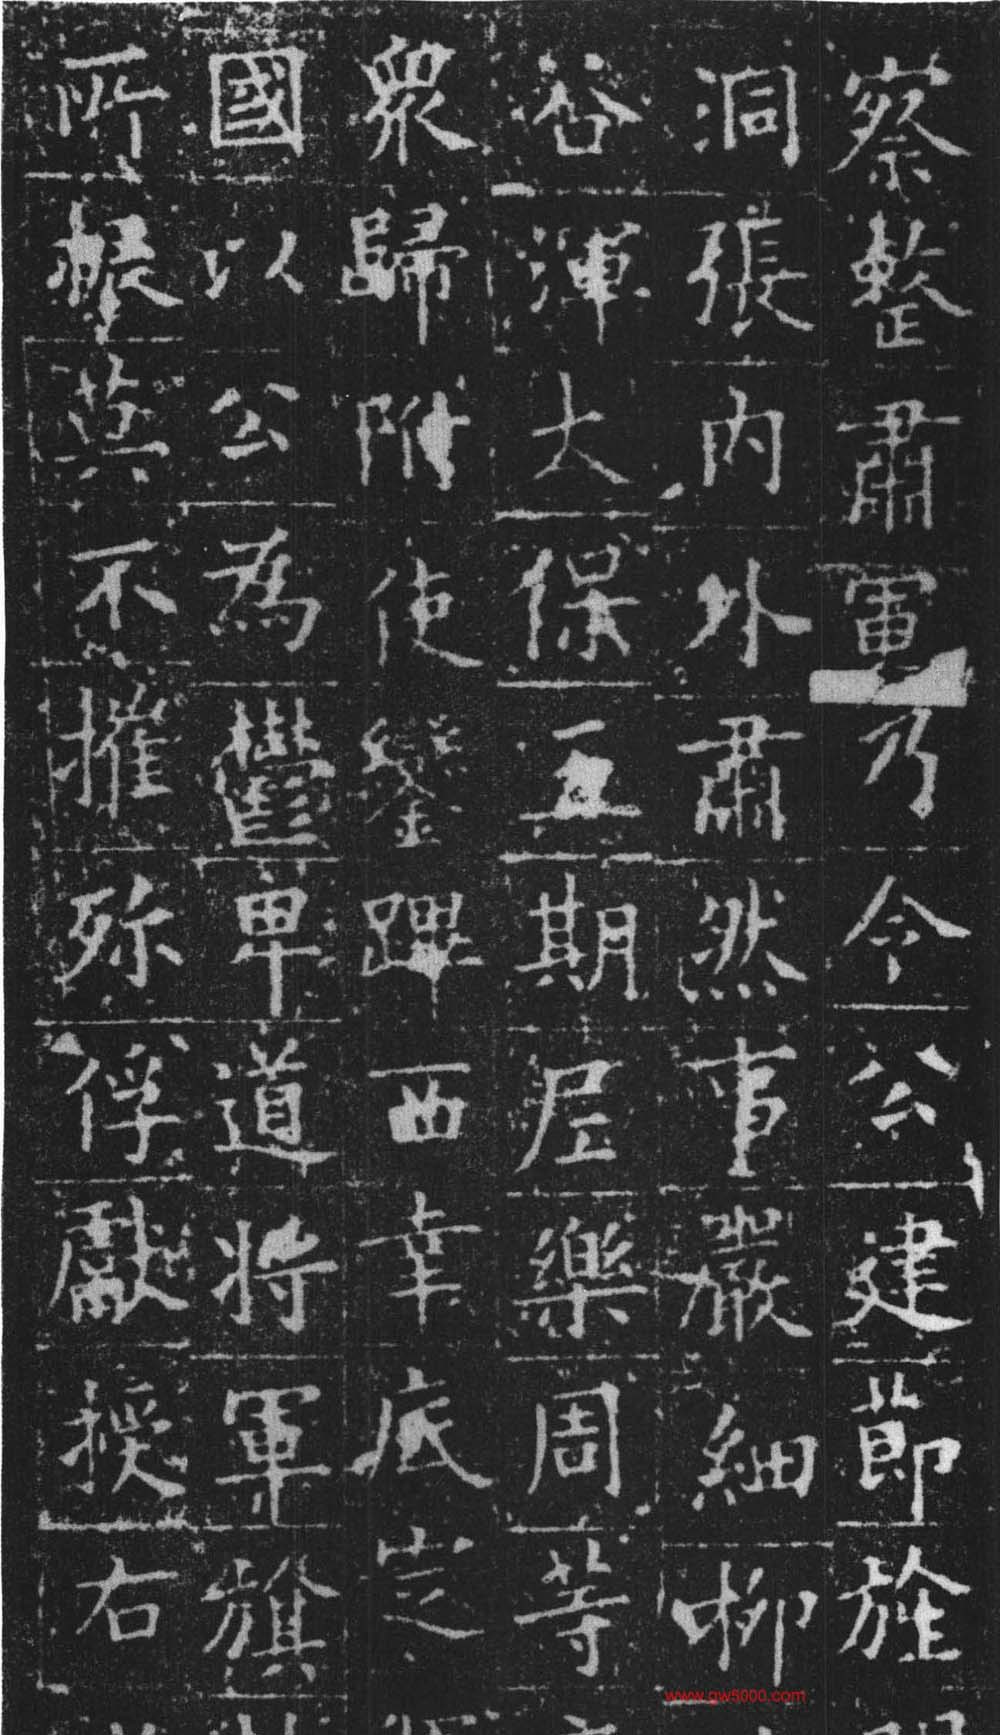 察整肅軍乃令公建節旌
洞張內外肅然事嚴細柳
谷渾大保五期㞐樂周等
眾歸附使鑾蹕西幸底定
國以公為鬱卑道將軍旗
所輾莫不摧殄俘獻授右
www.gw5000.com